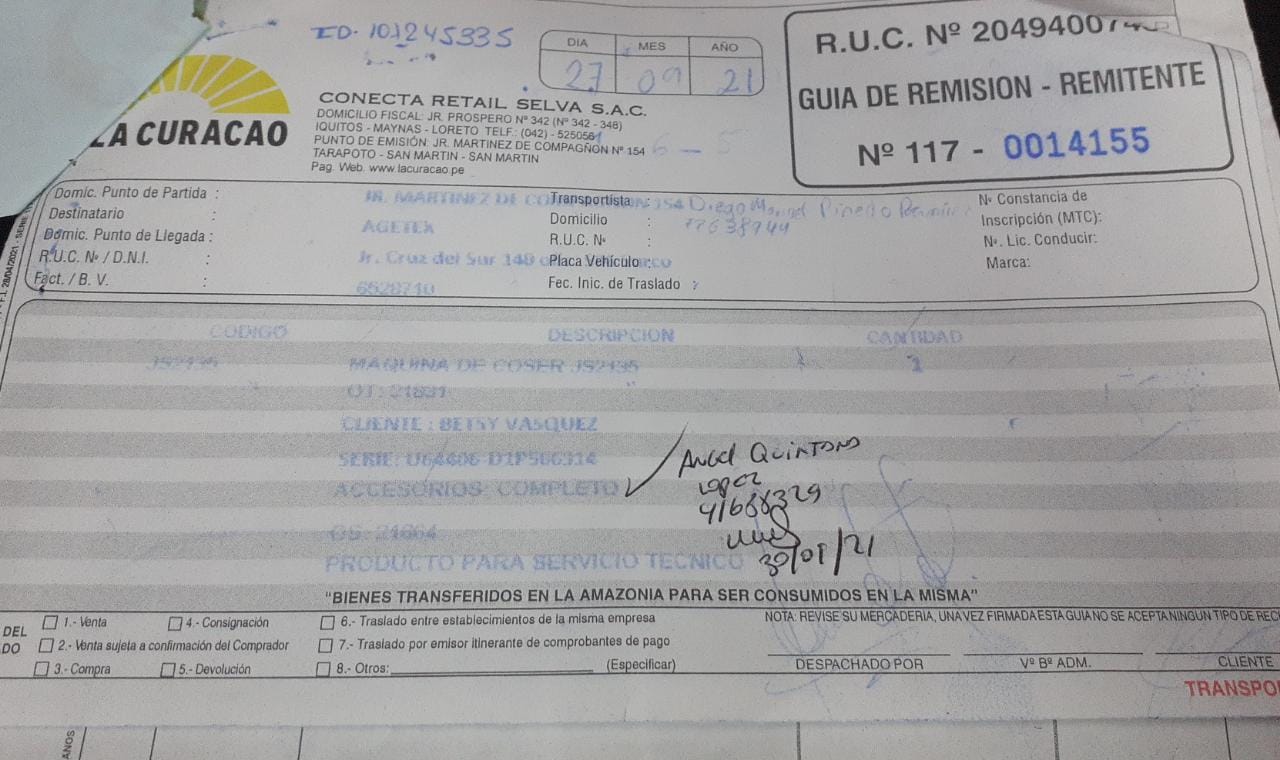 ID. 101245335
DIA MES AÑO
27 09 21
R.U.C. Nº 204940074
GUIA DE REMISION - REMITENTE
Nº 117 - 0014155
LA CURACAO
CONECTA RETAIL SELVA S.A.C.
DOMICILIO FISCAL: JR. PROSPERO Nº 342 (Nº 342 - 348)
IQUITOS - MAYNAS - LORETO TELF.: (042) - 525056
PUNTO DE EMISIÓN: JR. MARTINEZ DE COMPAGÑON Nº 154
TARAPOTO - SAN MARTIN - SAN MARTIN
Pag. Web. www.lacuracao.pe
Domic. Punto de Partida : JR. MARTINEZ DE 154
Destinatario : AGETEK
Domic. Punto de Llegada : Jr. Cruz del Sur 140
R.U.C. Nº / D.N.I. : 6528710
Fact. / B. V. :
Transportista : Diego Pinedo
Domicilio : 77638944
R.U.C. Nº :
Placa Vehículo :
Fec. Inic. de Traslado :
Nº Constancia de
Inscripción (MTC):
Nº. Lic. Conducir:
Marca:
CODIGO DESCRIPCION CANTIDAD
JS2135 MAQUINA DE COSER JS2135 1
OT: 21831
CLIENTE : BETSY VASQUEZ
SERIE: U64406-D1F566314
ACCESORIOS: COMPLETO
OS: 21664
PRODUCTO PARA SERVICIO TECNICO
Angel Quintana
Lopez
41688329
30/09/21
"BIENES TRANSFERIDOS EN LA AMAZONIA PARA SER CONSUMIDOS EN LA MISMA"
DEL
DO
1.- Venta
2.- Venta sujeta a confirmación del Comprador
3.- Compra
4.- Consignación
5.- Devolución
6.- Traslado entre establecimientos de la misma empresa
7.- Traslado por emisor itinerante de comprobantes de pago
8.- Otros: (Especificar)
NOTA: REVISE SU MERCADERIA, UNA VEZ FIRMADA ESTA GUIA NO SE ACEPTA NINGUN TIPO DE REC
DESPACHADO POR
Vº Bº ADM.
CLIENTE
TRANSPO
ANOS